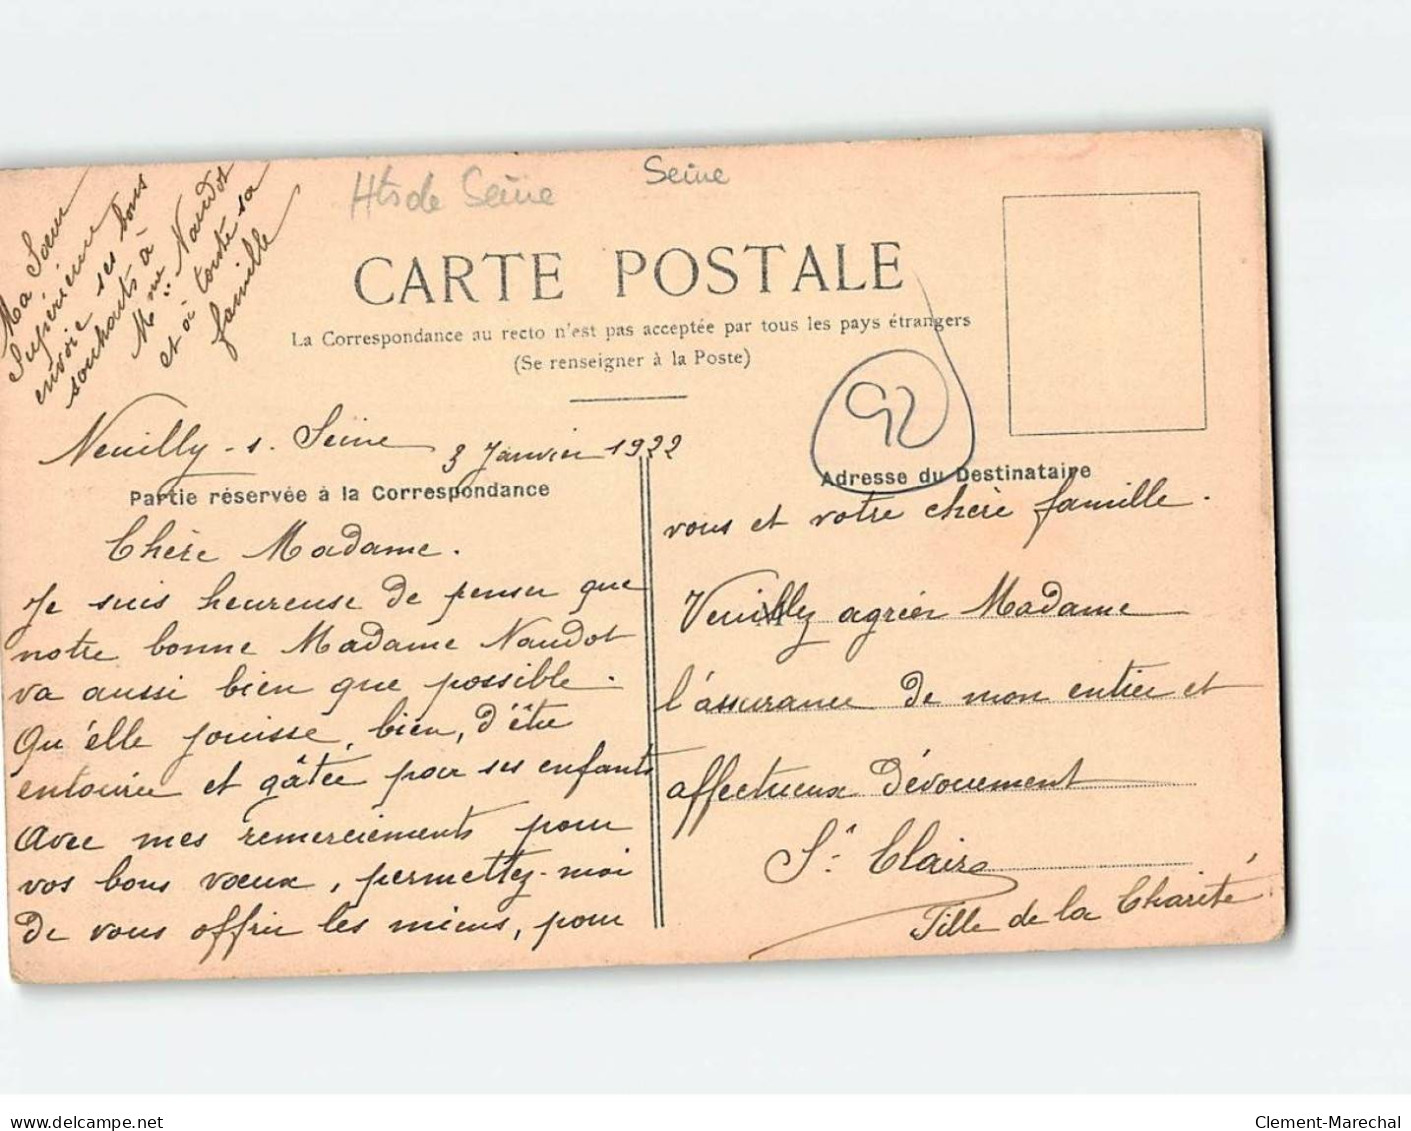 Ma Sœur
Supérieure
envoie ses bons
souhaits à
Mme Naudot
et à toute sa
famille
Hts de Seine
Seine
CARTE POSTALE
La Correspondance au recto n'est pas acceptée par tous les pays étrangers
(Se renseigner à la Poste)
92
Neuilly - s. Seine 3 Janvier 1922
Partie réservée à la Correspondance
Chère Madame.
Je suis heureuse de penser que
notre bonne Madame Naudot
va aussi bien que possible.
Qu'elle jouisse bien, d'être
entourée et gâtée par ses enfants
Avec mes remerciements pour
vos bons vœux, permettez-moi
de vous offrir les miens, pour
Adresse du Destinataire
vous et votre chère famille.
Veuillez agréer Madame
l'assurance de mon entier et
affectueux dévouement
Sr Claire
Fille de la Charité
www.delcampe.net
Clement-Marechal